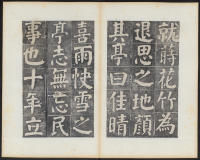 就蒔花竹為
退思之地顏
其亭曰佳晴
喜雨快雪之
亭志無忘民
事也十年立